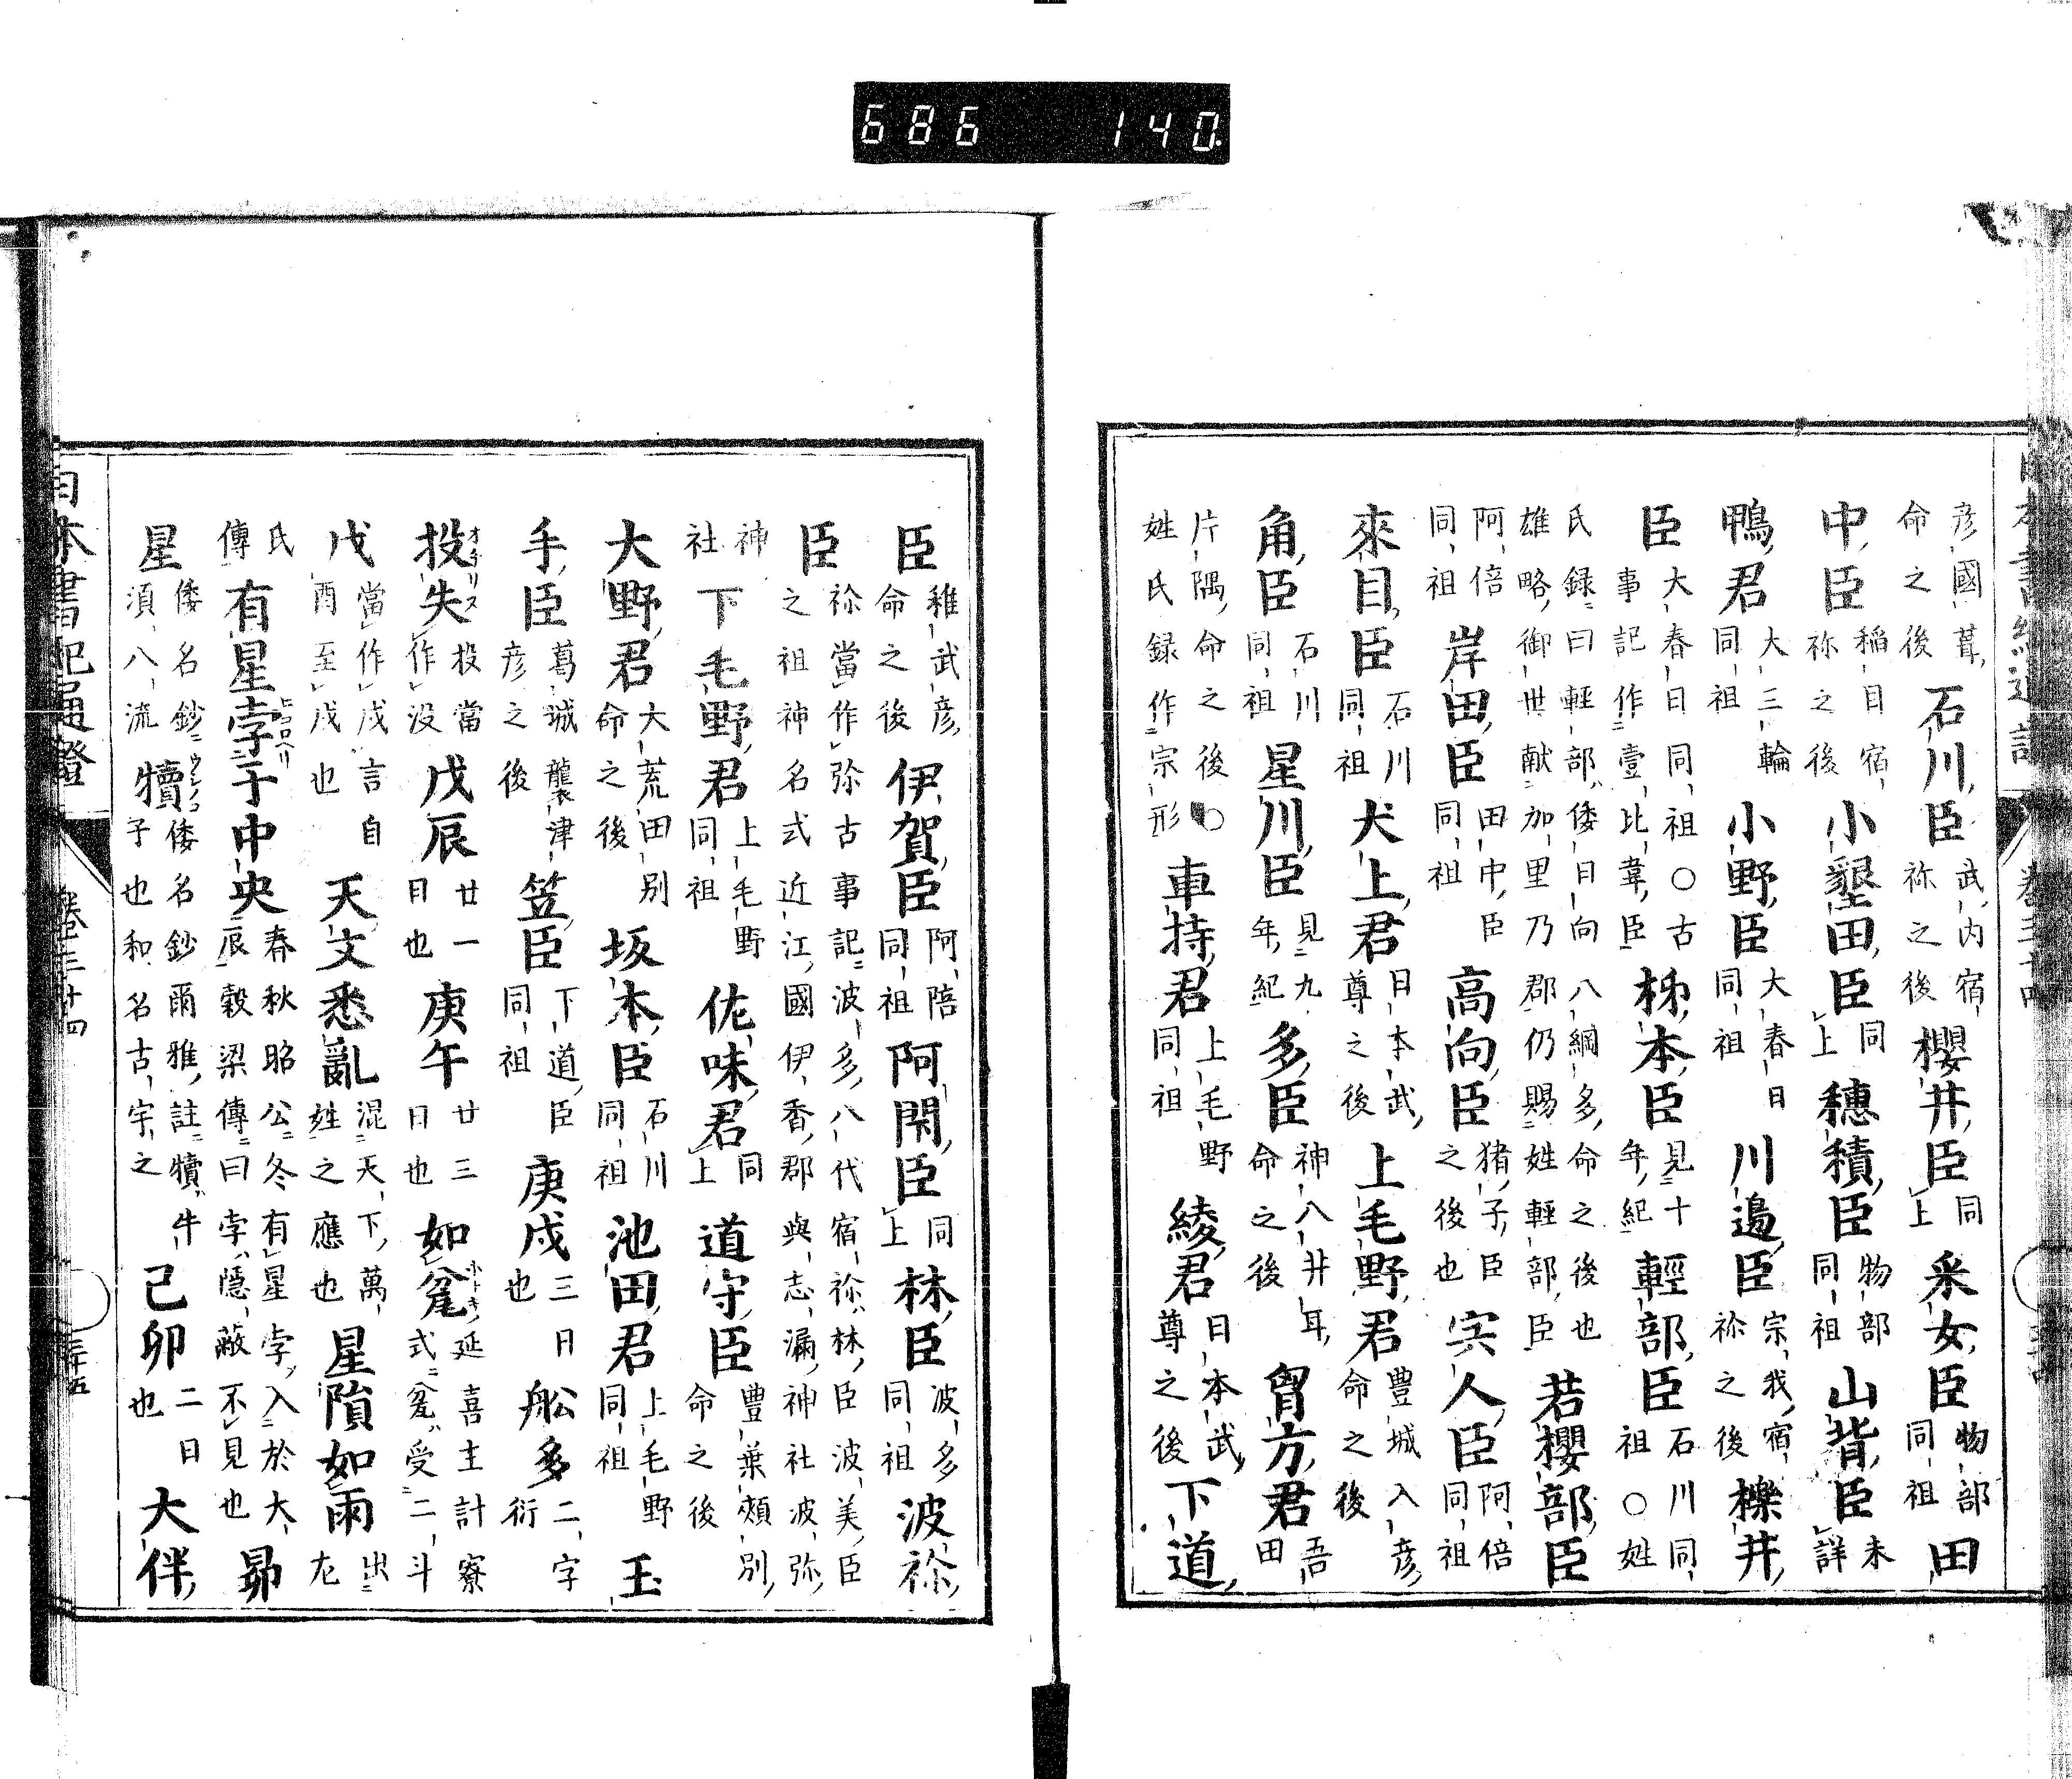 686 140
彦國葺命之後石川臣武内宿祢之後櫻井臣同上采女臣物部同祖田
中臣稲目宿祢之後小墾田臣同上穗積臣物部同祖山背臣未詳
鴨君大三輪同祖小野臣大春日同祖川邊臣宗我宿祢之後櫟井
臣大春日同祖○古事記作壹比韋臣柹本臣見十年紀輕部臣石川同祖○姓
氏録曰輕部倭日向八綱多命之後也雄略御世献加里乃郡仍賜姓輕部臣若櫻部臣
阿倍同祖岸田臣田中臣同祖高向臣猪子臣之後也宍人臣阿倍同祖
來目臣石川同祖犬上君日本武尊之後上毛野君豊城入彦命之後
角臣石川同祖星川臣見九年紀多臣神八井耳命之後胷方君吾田
片隅命之後○姓氏録作宗形車持君上毛野同祖綾君日本武尊之後下道
臣稚武彦命之後伊賀臣阿陪同祖阿閇臣同上林臣波多同祖波祢
臣祢當作弥古事記波多八代宿祢林臣波美臣之祖神名式近江國伊香郡與志漏神社波弥
神社下毛野君上毛野同祖佐味君同上道守臣豊葉頬別命之後
大野君大荒田別命之後坂本臣石川同祖池田君上毛野同祖玉
手臣葛城襲津彦之後笠臣下道臣同祖庚戌三日也舩多二字衍
投失オチリヌ投當作没戊辰廿一日也庚午廿三日也如瓮ホトキ延喜主計寮式瓮受二斗
戊當作戌言自酉至戌也天文悉亂混天下萬姓之應也星隕如雨出左
氏傳有星孛ヒコロヘリ于中央春秋昭公冬有星孛入於大辰穀梁傳曰孛隱蔽不見也昴
星倭名鈔須八流犢ウシノコ倭名鈔爾雅註犢牛子也和名古宇之己卯二日也大伴
日本書紀通證 卷三十四 三十五